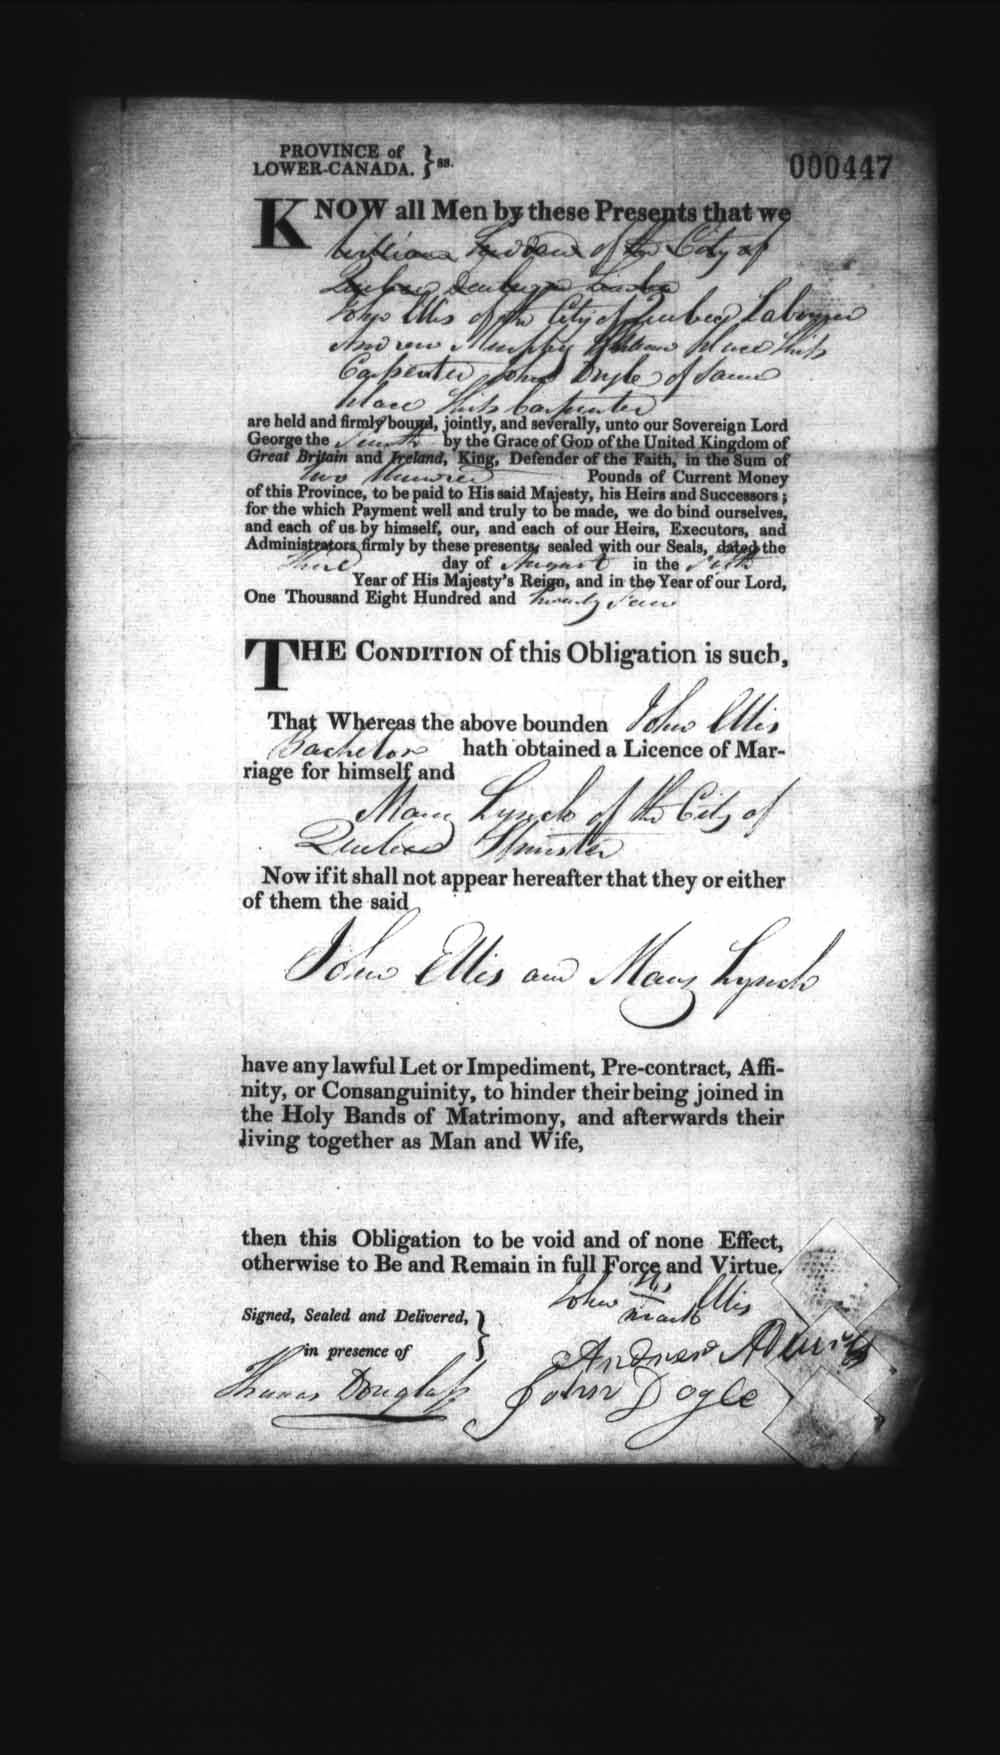 PROVINCE of
LOWER-CANADA. } ss.
000447
KNOW all Men by these Presents that we
William of the City of
Quebec
John Ellis of the City of Quebec Labourer
Andrew Murphy of same place Ship
Carpenter John Doyle of same
place Ship Carpenter
are held and firmly bound, jointly, and severally, unto our Sovereign Lord
George the Fourth by the Grace of GOD of the United Kingdom of
Great Britain and Ireland, King, Defender of the Faith, in the Sum of
Two Hundred Pounds of Current Money
of this Province, to be paid to His said Majesty, his Heirs and Successors ;
for the which Payment well and truly to be made, we do bind ourselves,
and each of us by himself, our, and each of our Heirs, Executors, and
Administrators firmly by these presents, sealed with our Seals, dated the
Third day of August in the
Year of His Majesty's Reign, and in the Year of our Lord,
One Thousand Eight Hundred and twenty
THE CONDITION of this Obligation is such,
That Whereas the above bounden John Ellis
Bachelor hath obtained a Licence of Mar-
riage for himself and
Mary Lynch of the City of
Quebec Spinster
Now if it shall not appear hereafter that they or either
of them the said
John Ellis and Mary Lynch
have any lawful Let or Impediment, Pre-contract, Affi-
nity, or Consanguinity, to hinder their being joined in
the Holy Bands of Matrimony, and afterwards their
living together as Man and Wife,
then this Obligation to be void and of none Effect,
otherwise to Be and Remain in full Force and Virtue.
John his Ellis
mark
Signed, Sealed and Delivered, }
in presence of
Andrew
Thomas Douglass
John Dogle